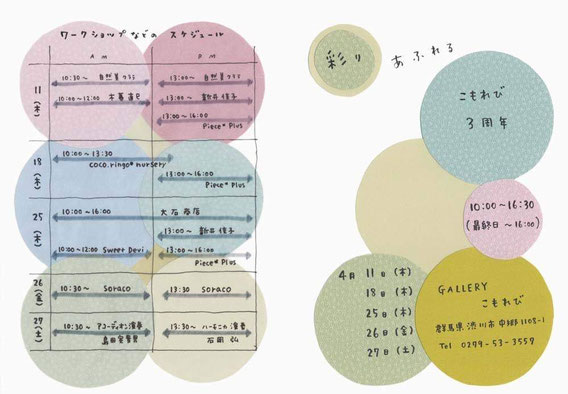 ワークショップなどの スケジュール
AM PM
11(木)
10:30〜 自然葉クララ 13:00〜 自然葉クララ
10:00〜12:00 木暮直巳 13:00〜16:00 新井 信子
13:00〜16:00 Piece* Plus
18(木)
10:00〜13:30 coco.ringo* nursery
13:00〜16:00 Piece* Plus
25(木)
10:00〜16:00 大石 泰店
13:00〜 新井 信子
10:00〜12:00 Sweet Devi 13:00〜16:00 Piece* Plus
26(金)
10:30〜 Soraco 13:30 Soraco
27(土)
10:30〜 アコーディオン演奏 13:30〜 ハーモニカ演奏
石岡 弘
彩り あふれる
こもれび
3周年
10:00〜16:30
(最終日 〜16:00)
4月 11日(木)
18日(木)
25日(木)
26日(金)
27日(土)
GALLERY
こもれび
群馬県渋川市中郷1108-1
Tel 0279-53-3557